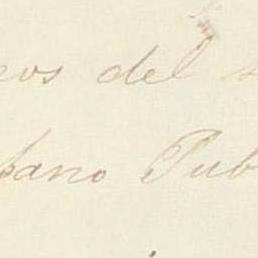 eos del
pano Pub